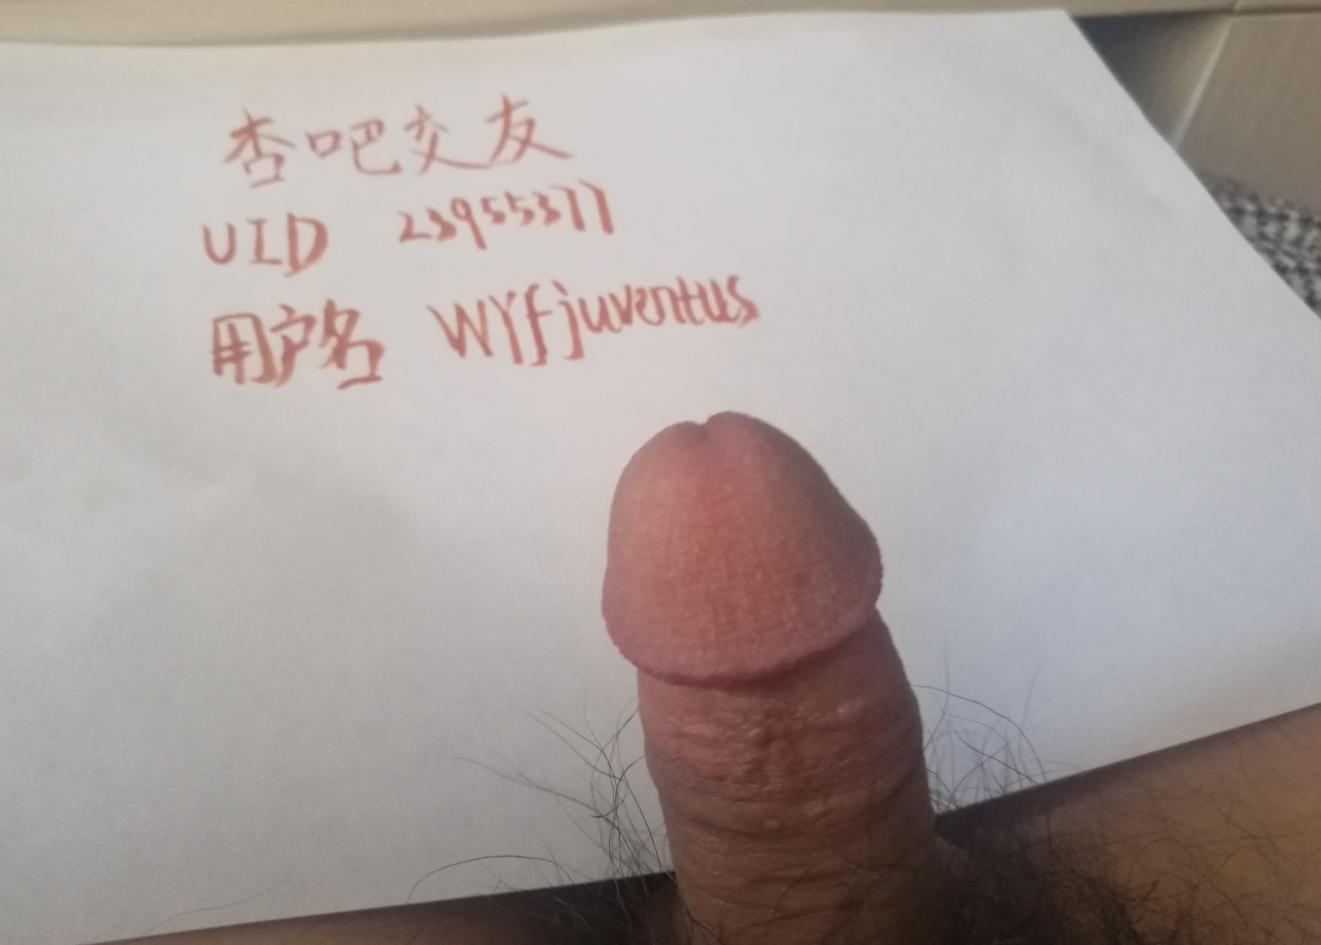 杏吧交友
UID 23955377
用户名 WYfjuventus